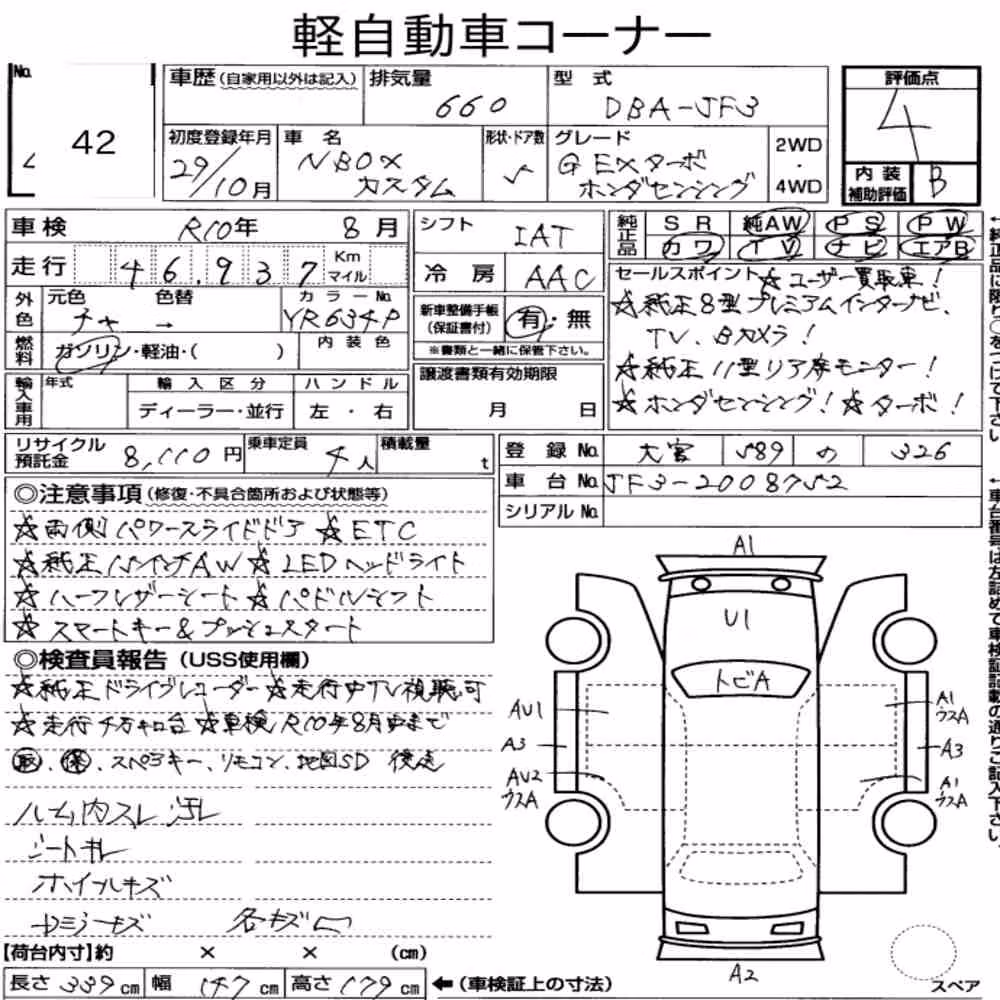 軽自動車コーナー
No. 42
車歴(自家用以外は記入) 排気量 660 型式 DBA-JF3 評価点 4
初度登録年月 29/10月 車名 NBOX カスタム 形状・ドア数 5 グレード G EXターボ ホンダセンシング 2WD・4WD 内装補助評価 B
車検 R10年 8月 シフト IAT 純正品 SR 純AW PS PW
走行 46,937 Km マイル 冷房 AAC カワ TV ナビ エアB
外色 元色 チャ 色替 → カラーNo. YR634P 新車整備手帳(保証書付) 有・無
※書類と一緒に保管下さい。
燃料 ガソリン・軽油・( ) 内装色
セールスポイント ☆ユーザー買取車!
☆純正8型プレミアムインターナビ、
TV、Bカメラ!
☆純正11型リア席モニター!
☆ホンダセンシング!☆ターボ!
輸入車用 年式 輸入区分 ディーラー・並行 ハンドル 左・右 譲渡書類有効期限 月 日
リサイクル預託金 8,110円 乗車定員 4人 積載量 t
登録No. 大宮 589 の 326
車台No. JF3-2008752
シリアルNo.
◎注意事項(修復・不具合箇所および状態等)
☆両側パワースライドドア ☆ETC
☆純正15インチAW ☆LEDヘッドライト
☆ハーフレザーシート ☆パドルシフト
☆スマートキー&プッシュスタート
◎検査員報告(USS使用欄)
☆純正ドライブレコーダー ☆走行中TV視聴可
☆走行4万キロ台 ☆車検R10年8月まで
取、保、スペアキー、リモコン、地図SD 後送
ルーム内スレ汚レ
シートキレ
ホイルキズ
各キズ凹
【荷台内寸】約 × × (cm)
長さ 339cm 幅 147cm 高さ 179cm ←(車検証上の寸法)
A1
U1
トビA
AU1
A3
AU2
ウスA
A1
ウスA
A3
A1
ウスA
A2
スペア
←純正品に限り○をつけて下さい。
←車台番号は左詰めで車検証記載の通りご記入下さい。